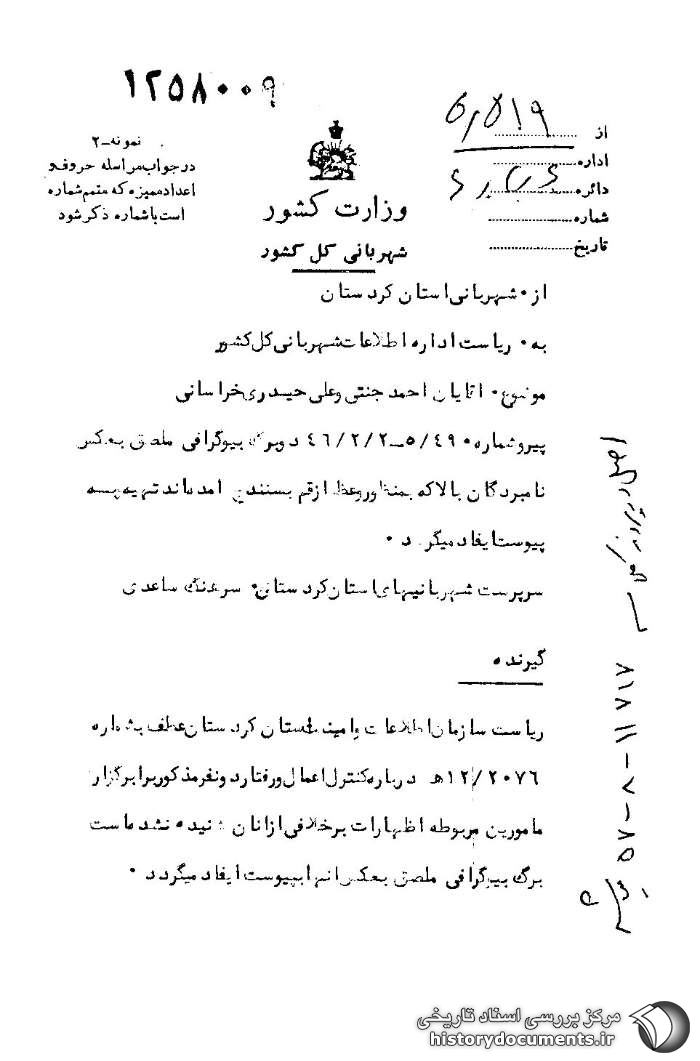 ۱۲۵۸۰۰۹
نمونه-۲
در جواب مراسله حروف و
اعداد ممیزه که متمم شماره
است با شماره ذکر شود
وزارت کشور
شهربانی کل کشور
از
اداره
دائره
شماره
تاریخ
از۰ شهربانی استان کردستان
به۰ ریاست اداره اطلاعات شهربانی کل کشور
موضوع۰ اقایان احمد جنتی و علی حیدری خراسانی
پیرو شماره ۵/۴۹۰-۴۶/۲/۲ دو برگ بیوگرافی ملصق بعکس
نامبردگان بالا که بمنظور وعظ از قم بسنندج امده‌اند تهیه بسه
پیوست ایفاد میگردد ۰
سرپرست شهربانیهای استان کردستان۰ سرهنگ ساعدی
گیرنده
ریاست سازمان اطلاعات و امنیت استان کردستان عطف بشماره
۱۲/۲۰۷۶ه‍ درباره کنترل اعمال و رفتار دو نفر مذکور برابر گزارش
مامورین مربوطه اظهارات برخلافی از انان شنیده نشده است
برگ بیوگرافی ملصق بعکس انها بپیوست ایفاد میگردد ۰
مرکز بررسی اسناد تاریخی
historydocuments.ir